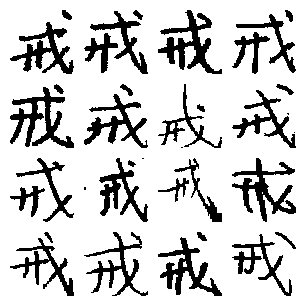 戒戒戒戒
戒戒戒戒
戒戒戒戒
戒戒戒戒